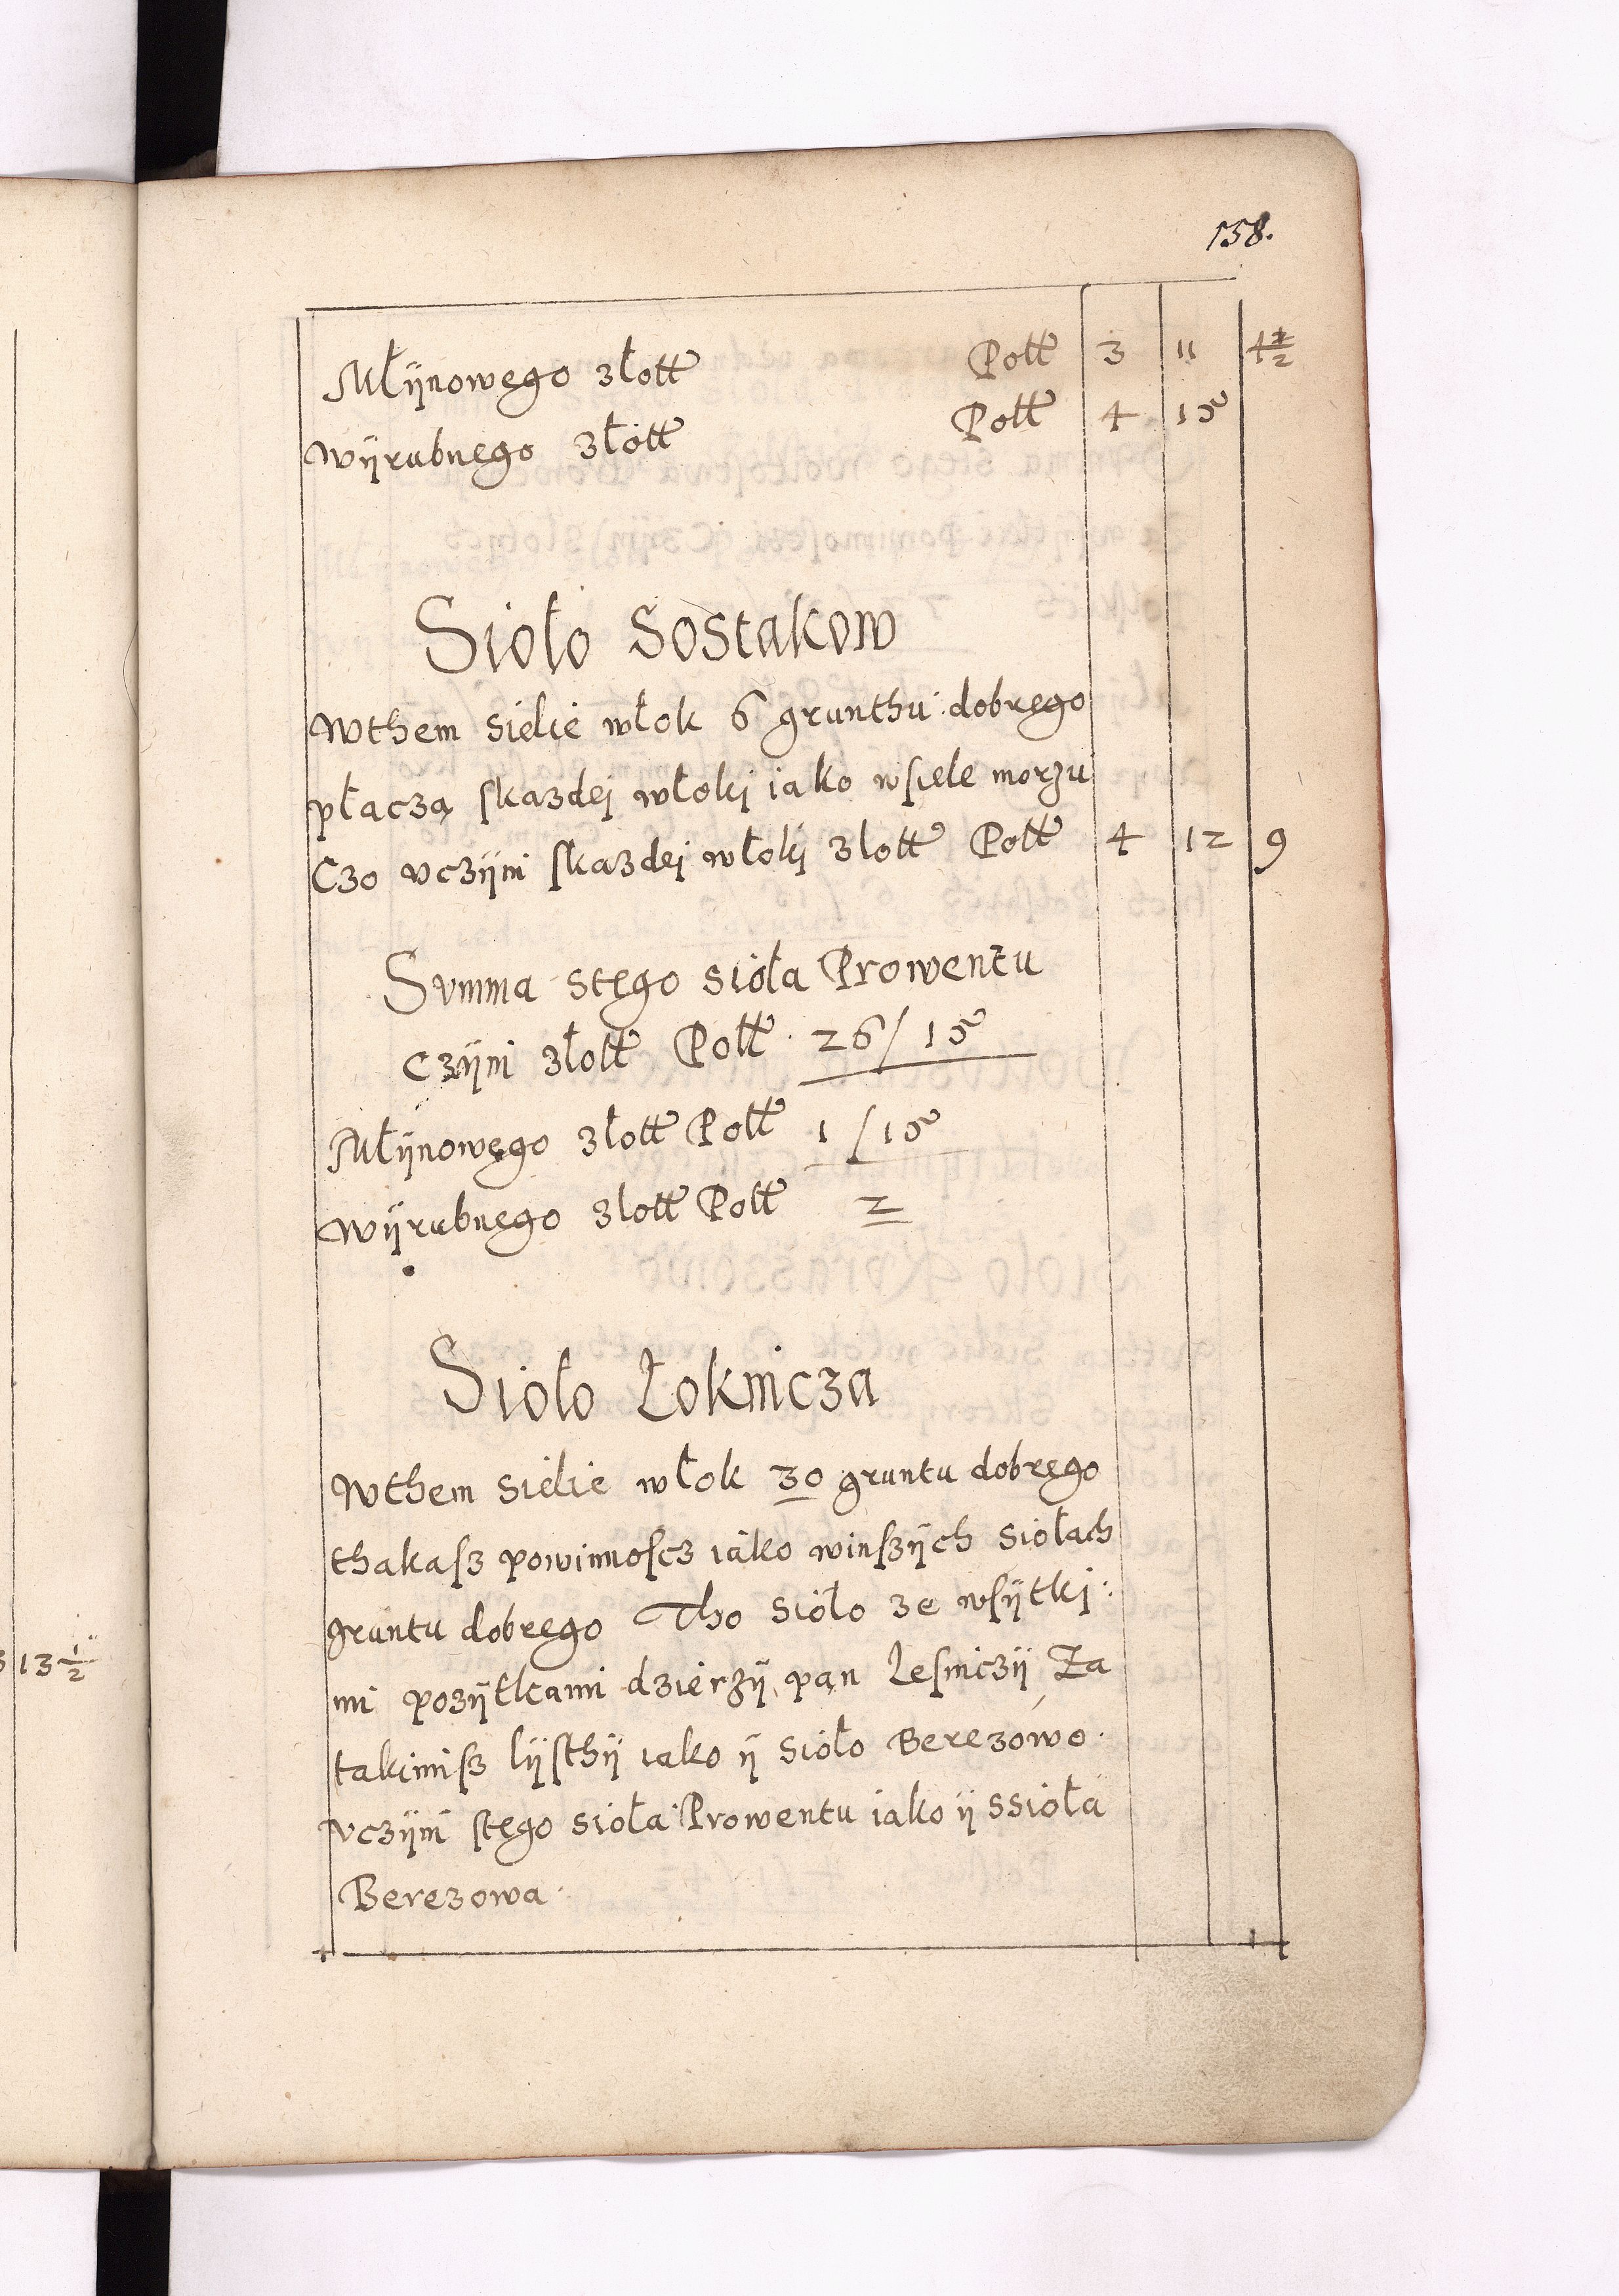 158.
Młÿnowego złott Pott 3 11 4½
Wÿrubnego złott Pott 4 15
Sioło Sostakow
Wthem sielie włok 6 grunthu dobrego
płaczą skazdej włoki iako wsiele morzu
Czo vczÿni skazdej włoki zlott Pott 4 12 9
Svmma stego sioła Prowentu
czÿni złott Pott 26/15
Młÿnowego złott Pott 1/15
Wÿrubnego zlott Pott 2
Sioło Łoknicza
Wthem sielie włok 30 gruntu dobrego
thakasz powinnoscz iako winszÿch siołach
gruntu dobrego Tho sioło ze wsÿtki:
mi pozÿtkami dzierzÿ pan Lesniczÿ Za
takimisz lÿsthÿ iako ÿ sioło Berezowo.
vczÿni stego sioła Prowentu iako ÿ ssioła
Berezowa.
13½